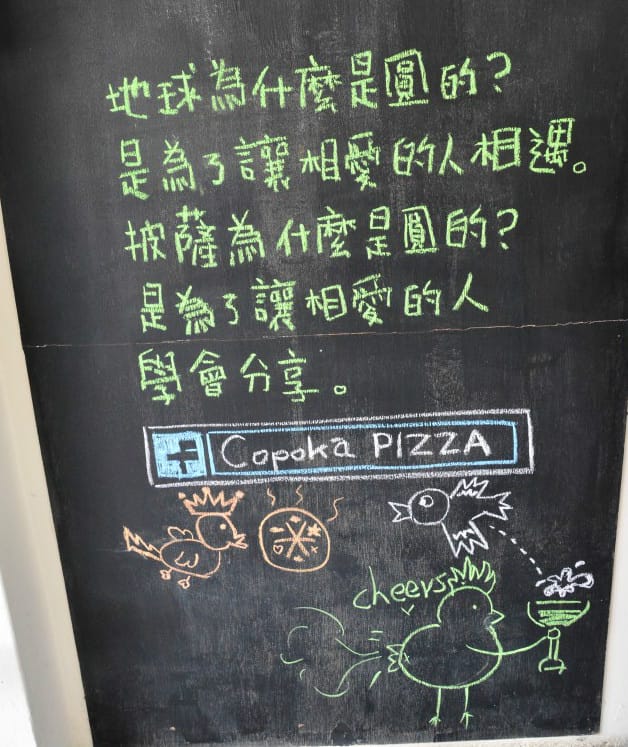 地球為什麼是圓的?
是為了讓相愛的人相遇。
披薩為什麼是圓的?
是為了讓相愛的人
學會分享。
f Copoka PIZZA
cheers